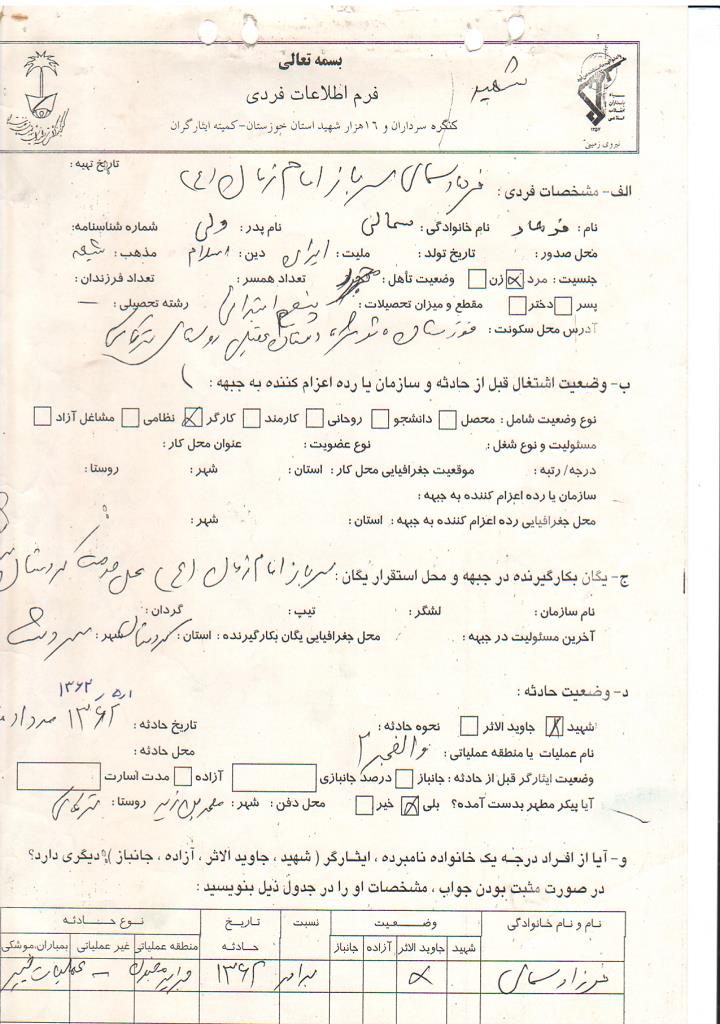 بسمه تعالی
شهید
فرم اطلاعات فردی
کنگره سرداران و ۱۶هزار شهید استان خوزستان-کمیته ایثارگران
سپاه پاسداران انقلاب اسلامی
نیروی زمینی
تاریخ تهیه :
الف- مشخصات فردی : سرباز امام زمان (عج)
نام : فرهاد نام خانوادگی : سمالی نام پدر : ولی شماره شناسنامه:
محل صدور : تاریخ تولد : ملیت : ایران دین : اسلام مذهب : شیعه
جنسیت : مرد زن وضعیت تأهل : مجرد تعداد همسر : تعداد فرزندان :
پسر دختر مقطع و میزان تحصیلات : پنجم ابتدایی رشته تحصیلی : —
آدرس محل سکونت : خوزستان شوشتر دهستان عقیلی روستای
ب- وضعیت اشتغال قبل از حادثه و سازمان یا رده اعزام کننده به جبهه :
نوع وضعیت شامل : محصل دانشجو روحانی کارمند کارگر نظامی مشاغل آزاد
مسئولیت و نوع شغل : نوع عضویت : عنوان محل کار :
درجه/ رتبه : موقعیت جغرافیایی محل کار : استان : شهر : روستا :
سازمان یا رده اعزام کننده به جبهه :
محل جغرافیایی رده اعزام کننده به جبهه : استان : شهر :
ج- یگان بکارگیرنده در جبهه و محل استقرار یگان : سرباز امام زمان (عج) محل خدمت کردستان
نام سازمان : لشگر : تیپ : گردان :
آخرین مسئولیت در جبهه : محل جغرافیایی یگان بکارگیرنده : استان : کردستان شهر : سردشت
د- وضعیت حادثه :
۱۳۶۲
شهید جاوید الاثر نحوه حادثه : تاریخ حادثه : ۱۳۶۲ مرداد
نام عملیات یا منطقه عملیاتی : والفجر ۲ محل حادثه :
وضعیت ایثارگر قبل از حادثه : جانباز درصد جانبازی آزاده مدت اسارت
آیا پیکر مطهر بدست آمده؟ بلی خیر محل دفن : شهر : محمد بن زید روستا :
و- آیا از افراد درجه یک خانواده نامبرده ، ایثارگر ( شهید ، جاوید الاثر ، آزاده ، جانباز ) دیگری دارد؟
در صورت مثبت بودن جواب ، مشخصات او را در جدول ذیل بنویسید :
نام و نام خانوادگی وضعیت نسبت تاریخ حادثه نوع حادثه
شهید جاوید الاثر آزاده جانباز منطقه عملیاتی غیر عملیاتی بمباران،موشکی
فرزاد سمالی برادر ۱۳۶۲ جزایر مجنون — عملیات خیبر